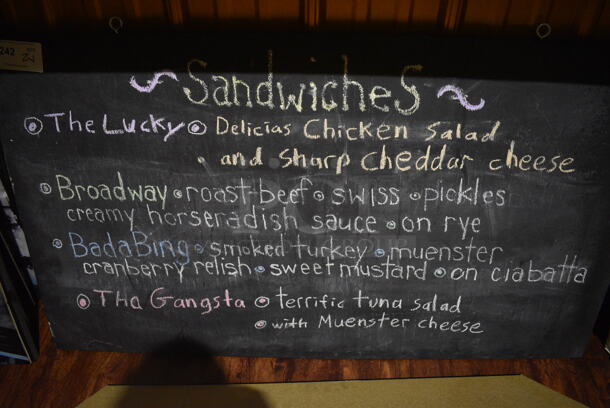 242
~ Sandwiches ~
The Lucky Delicias Chicken Salad
and sharp cheddar cheese
Broadway roast-beef swiss pickles
creamy horseradish sauce on rye
BadaBing smoked turkey muenster
cranberry relish sweet mustard on ciabatta
Tha Gangsta terrific tuna salad
with Muenster cheese